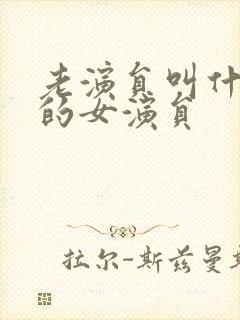 老演员叫什
的女演员
拉尔-斯兹曼